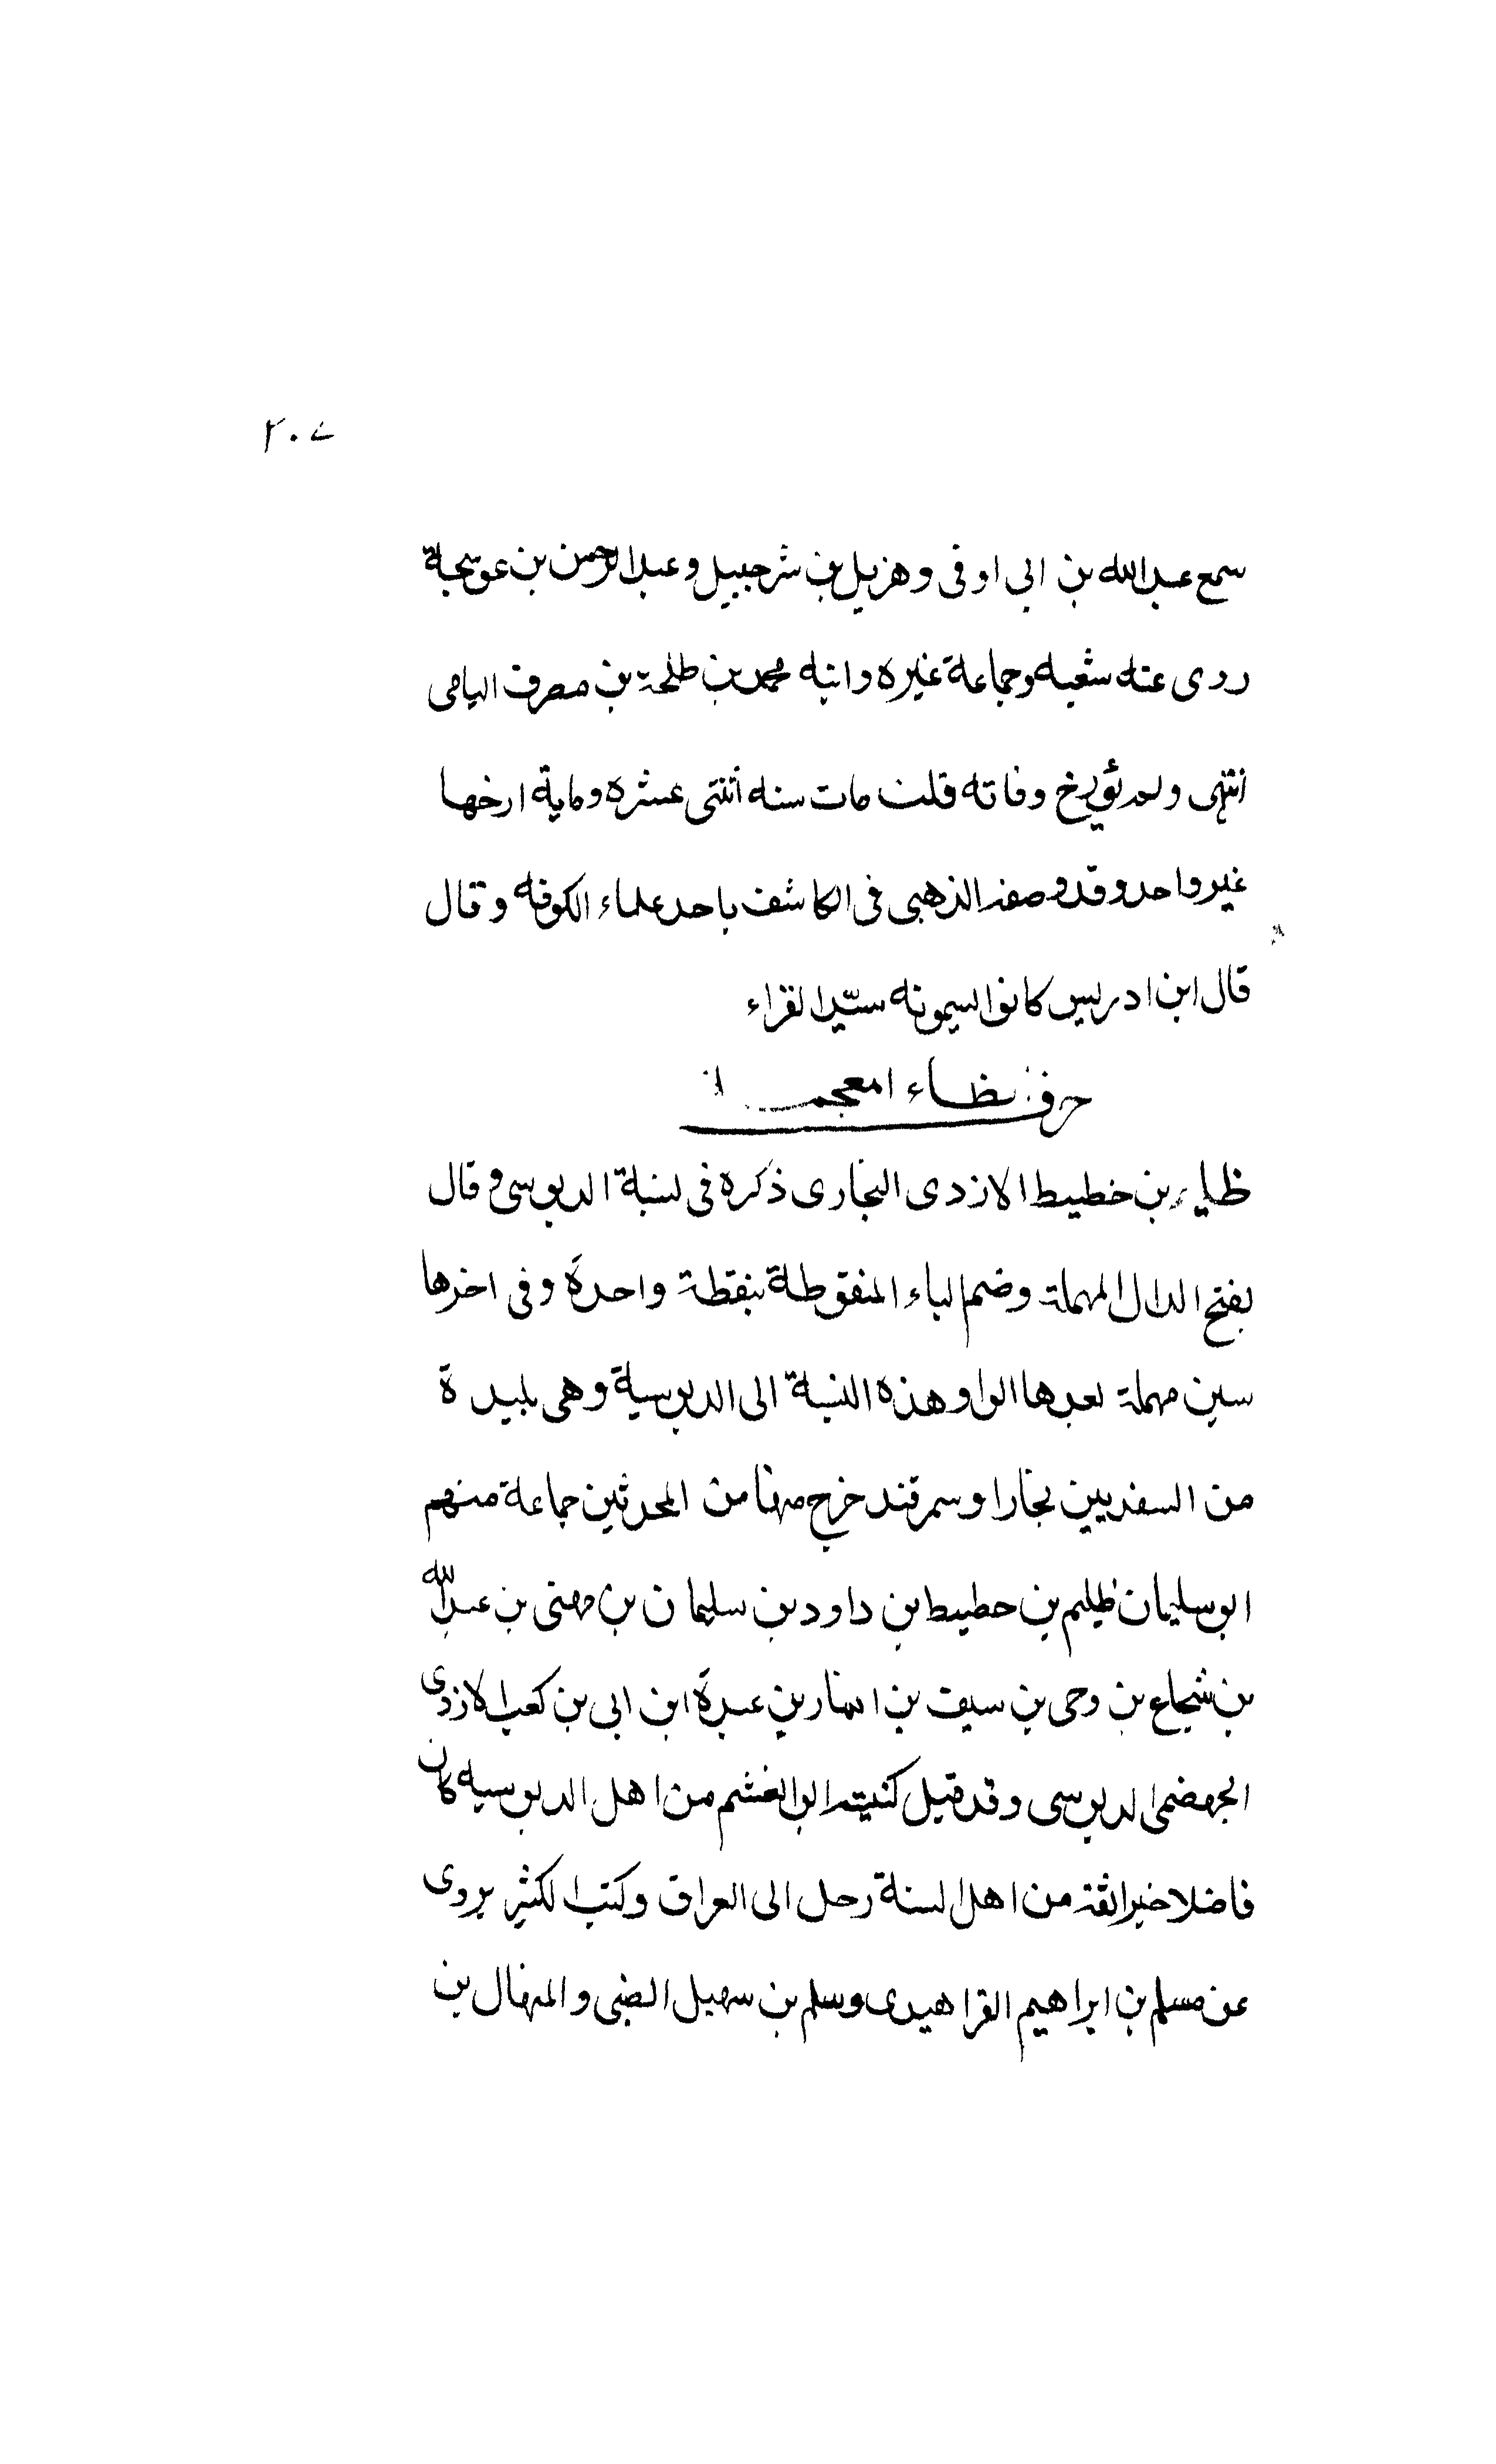 ٢٠٧
سمع عبد الله بن ابي اوفى وهزيل بن شرحبيل وعبد الرحمن بن عوسجة
روى عنه شعبه وجماعة غيره وابنه محمد بن طلحة بن مصرف اليامى
انتهى ولم يؤرخ وفاته قلت مات سنه اثنتى عشره وماية ارخها
غير واحد وقد وصفه الذهبى فى الكاشف باحد علماء الكوفه وقال
قال ابن ادريس كانوا يسمونه سيّد القراء
حرف الظاء المعجمة
ظليم بن خطيط الازدى البخارى ذكره فى نسبة الدبوسى وقال
بفتح الدال المهملة وضم الباء المنقوطة بنقطة واحدة وفى اخرها
سين مهملة بعدها الواو هذه النسبة الى الدبوسية وهى بليدة
من السغد بين بخارا وسمرقند خرج منها من المحدثين جماعة منهم
ابو سليمان ظليم بن حطيط بن داود بن سليمان بن مهنى بن عبد الله
بن شجاع بن وحى بن سيف بن انمار بن عبدة ابن ابى بن كعب الازدى
الجهضمى الدبوسى وقد قيل كنيته ابو الغشم من اهل الدبوسيه كان
فاضلا خيرا ثقة من اهل السنة رحل الى العراق وكتب الكثير يروى
عن مسلم بن ابراهيم الفراهيدى وسلم بن سهيل الضبى والمنهال بن